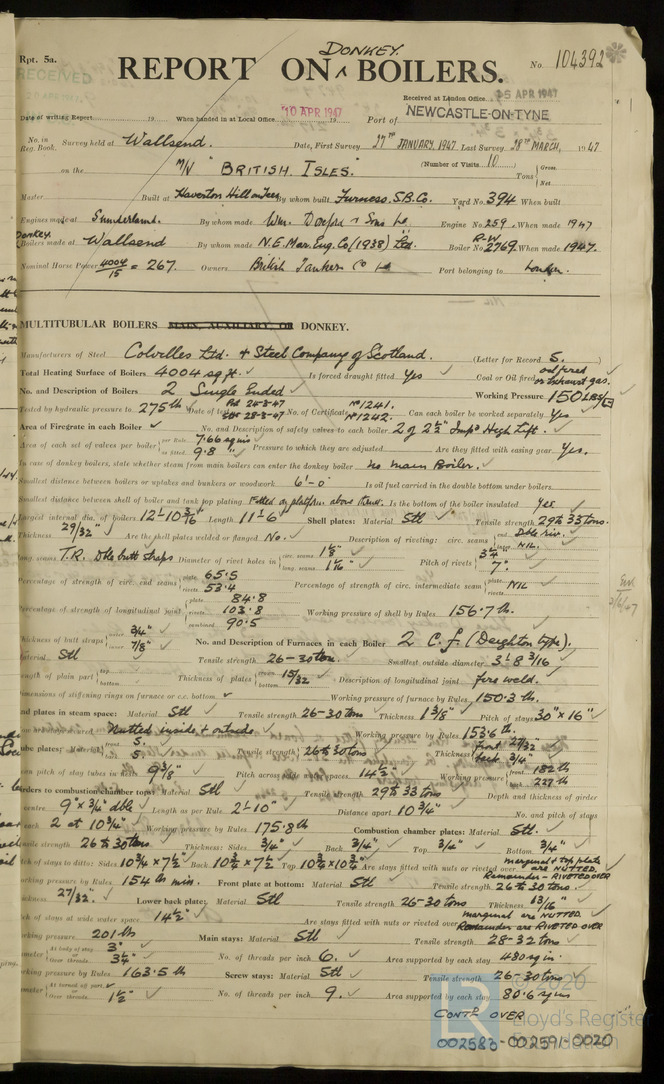 Rpt. 5a.
DONKEY.
REPORT ON BOILERS.
No. 104392
RECEIVED
Received at London Office 15 APR 1947
Date of writing Report 19 When handed in at Local Office 10 APR 1947 19 Port of NEWCASTLE-ON-TYNE
No. in Reg. Book. Survey held at Wallsend. Date, First Survey 27TH JANUARY, 1947. Last Survey 28TH MARCH, 1947
on the M/V "BRITISH ISLES." (Number of Visits 10) Tons Gross Net
Master Built at Haverton Hill on Tees By whom built Furness S.B. Co. Yard No. 394 When built
Engines made at Sunderland. By whom made Wm. Doxford & Sons Ld Engine No. 259 When made 1947
Donkey Boilers made at Wallsend By whom made N.E. Mar. Eng. Co (1938) Ltd. Boiler No. 2769 When made 1947.
Nominal Horse Power 4004/15 = 267. Owners British Tanker Co Ld Port belonging to London.
MULTITUBULAR BOILERS MAIN, AUXILIARY, OR DONKEY.
Manufacturers of Steel Colvilles Ltd. & Steel Company of Scotland. (Letter for Record S.)
Total Heating Surface of Boilers 4004 sq ft. Is forced draught fitted Yes Coal or Oil fired oil fired or exhaust gas.
No. and Description of Boilers 2 Single Ended Working Pressure 150 LBS/□"
Tested by hydraulic pressure to 275 lb Date of test 24-3-47 28-3-47 No. of Certificate No 1241. No 1242. Can each boiler be worked separately Yes
Area of Firegrate in each Boiler No. and Description of safety valves to each boiler 2 of 2½" Impd High Lift.
Area of each set of valves per boiler per Rule 7.66 sq ins as fitted 9.8 " Pressure to which they are adjusted Are they fitted with easing gear Yes.
In case of donkey boilers, state whether steam from main boilers can enter the donkey boiler No main Boiler.
Smallest distance between boilers or uptakes and bunkers or woodwork 6'-0 Is oil fuel carried in the double bottom under boilers
Smallest distance between shell of boiler and tank top plating Fitted on platform above them. Is the bottom of the boiler insulated Yes
Largest internal dia. of boilers 12'-10 3/16 Length 11'6" Shell plates: Material Stl Tensile strength 29 to 33 tons.
Thickness 29/32" Are the shell plates welded or flanged No. Description of riveting: circ. seams end Dble riv. inter. NIL.
long. seams T.R. Dble butt straps Diameter of rivet holes in circ. seams 1⅛" long. seams Pitch of rivets 7".
Percentage of strength of circ. end seams plate 65.5 rivets 53.4 Percentage of strength of circ. intermediate seam plate NIL rivets
Percentage of strength of longitudinal joint plate 84.8 rivets 103.8 combined 90.5 Working pressure of shell by Rules 156.7 lb.
Thickness of butt straps outer 3/4" inner 7/8" No. and Description of Furnaces in each Boiler 2 C.f. (Deighton type).
Material Stl Tensile strength 26-30 tons. Smallest outside diameter 3'-8 3/16
Length of plain part top bottom Thickness of plates bottom 15/32 Description of longitudinal joint fire weld.
Dimensions of stiffening rings on furnace or c.c. bottom Working pressure of furnace by Rules 150.3 lb.
End plates in steam space: Material Stl Tensile strength 26-30 tons Thickness 1⅛" Pitch of stays 30" x 16"
Nutted inside & outside Working pressure by Rules 153.6 lb.
Tube plates: Material front S. back S. Tensile strength 26 to 30 tons Thickness front 27/32" back 3/4"
Mean pitch of stay tubes in nests 9⅜" Pitch across wide water spaces 14½" Working pressure front 182 lb back 227 lb
Girders to combustion chamber tops: Material Stl Tensile strength 29 to 33 tons Depth and thickness of girder
at centre 9" x 3/4" dble Length as per Rule 2'-10" Distance apart 10¾" No. and pitch of stays
in each 2 at 10¾" Working pressure by Rules 175.8 lb Combustion chamber plates: Material Stl.
Tensile strength 26 to 30 tons Thickness: Sides 3/4" Back 3/4" Top 3/4" Bottom 3/4"
Pitch of stays to ditto: Sides 10¾ x 7½ Back 10¾ x 7½ Top 10¾ x 10¾" Are stays fitted with nuts or riveted over marginal & top plate are NUTTED. Remainder - RIVETED OVER
Working pressure by Rules 154 lbs min. Front plate at bottom: Material Stl Tensile strength 26 to 30 tons.
Thickness 27/32". Lower back plate: Material Stl Tensile strength 26-30 tons Thickness 13/16"
Pitch of stays at wide water space 14½" Are stays fitted with nuts or riveted over marginal are NUTTED. Remainder are RIVETED OVER
Working pressure 201 lb Main stays: Material Stl Tensile strength 28-32 tons
Diameter At body of stay 3" Over threads 3¼" No. of threads per inch 6. Area supported by each stay 480 sq in.
Working pressure by Rules 163.5 lb Screw stays: Material Stl Tensile strength 26-30 tons
Diameter At turned off part Over threads 1½" No. of threads per inch 9. Area supported by each stay 80.6 sq ins
CONTD OVER
© 2020
Lloyd's Register Foundation
002583-002591-0020